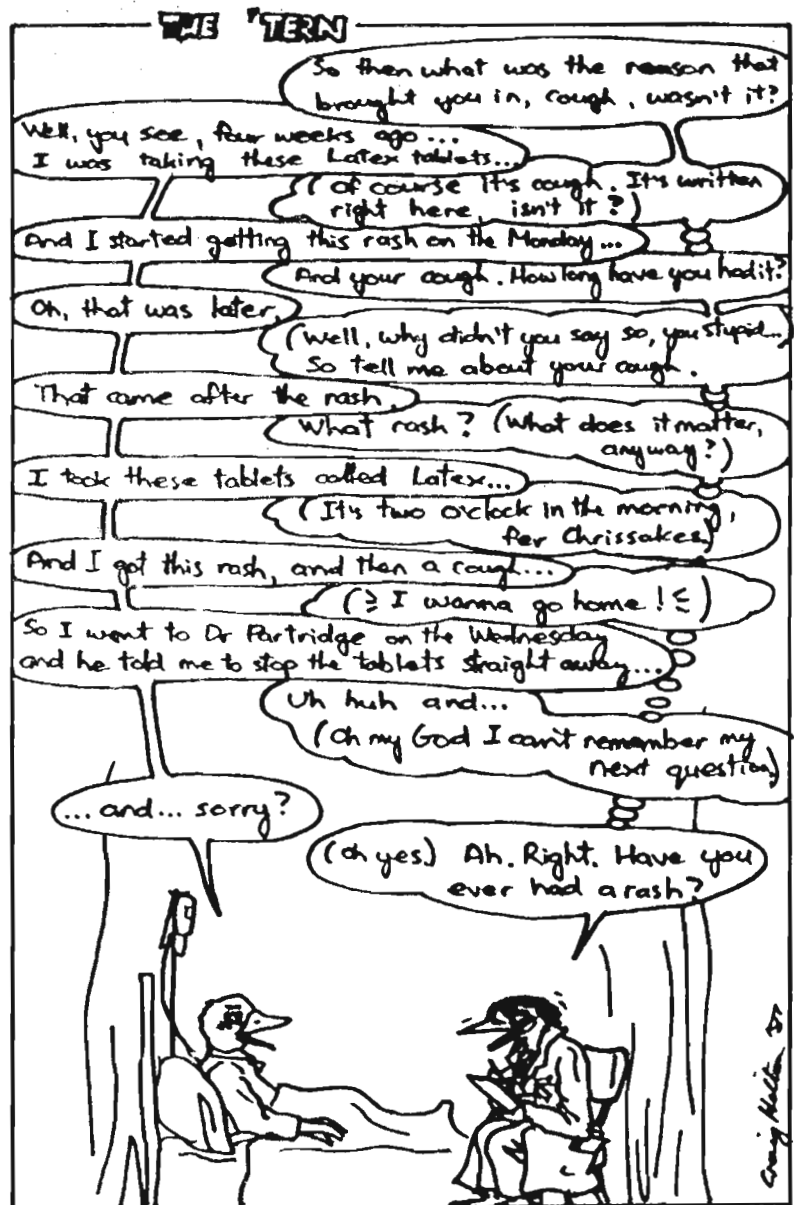 THE 'TERN
So then what was the reason that
brought you in, cough, wasn't it?
Well, you see, four weeks ago...
I was taking these Latex tablets...
(Of course it's cough. It's written
right here, isn't it?)
And I started getting this rash on the Monday...
And your cough. How long have you had it?
Oh, that was later.
(Well, why didn't you say so, you stupid...
So tell me about your cough.
That came after the rash.
What rash? (What does it matter,
anyway?)
I took these tablets called Latex...
(It's two o'clock in the morning,
fer Chrissakes)
And I got this rash, and then a cough...
(I wanna go home!)
So I went to Dr Partridge on the Wednesday
and he told me to stop the tablets straight away...
Uh huh and...
(Oh my God I can't remember my
next question)
...and... sorry?
(Oh yes.) Ah. Right. Have you
ever had a rash?
Craig Hilton '87